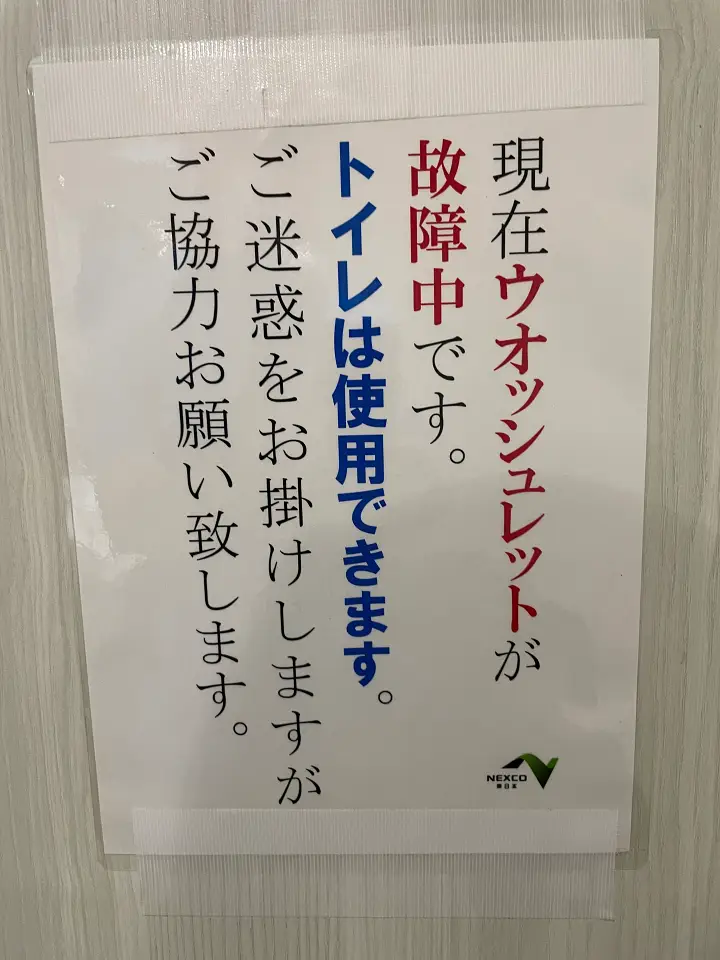 現在ウオッシュレットが
故障中です。
トイレは使用できます。
ご迷惑をお掛けしますが
ご協力お願い致します。
NEXCO
東日本